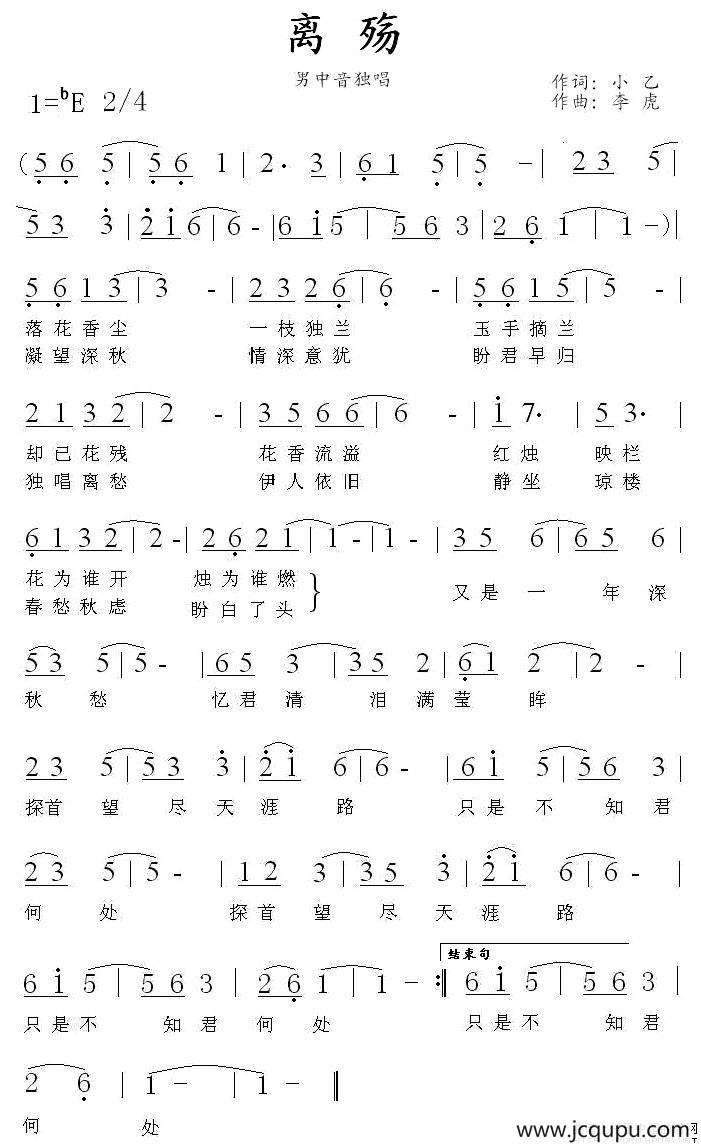 离 殇
男中音独唱
作词: 小 乙
1=ᵇE 2/4
作曲: 李 虎
(5̣ 6̣ 5̣ | 5̣ 6̣ 1 | 2· 3 | 6̣ 1 5̣ | 5̣ - | 2 3 5 |
5 3 3̇ | 2̇ i̇ 6 | 6 - | 6 i̇ 5 | 5 6 3 | 2 6̣ 1 | 1 -) |
5̣ 6̣ 1 3 | 3 - | 2 3 2 6̣ | 6̣ - | 5̣ 6̣ 1 5 | 5 - |
落花香尘 一枝独兰 玉手摘兰
凝望深秋 情深意犹 盼君早归
2 1 3 2 | 2 - | 3 5 6 6 | 6 - | i̇ 7· | 5 3· |
却已花残 花香流溢 红烛 映栏
独唱离愁 伊人依旧 静坐 琼楼
6̣ 1 3 2 | 2 - | 2 6̣ 2 1 | 1 - | 1 - | 3 5 6 | 6 5 6 |
花为谁开 烛为谁燃
春愁秋虑 盼白了头 } 又是一 年深
5 3 5 | 5 - | 6 5 3 | 3 5 2 | 6̣ 1 2 | 2 - |
秋 愁 忆君清 泪满莹 眸
2 3 5 | 5 3 3̇ | 2̇ i̇ 6 | 6 - | 6 i̇ 5 | 5 6 3 |
探首 望 尽天涯 路 只是不 知君
2 3 5 | 5 - | 1 2 3 | 3 5 3̇ | 2̇ i̇ 6 | 6 - |
何 处 探首 望 尽天涯 路
结束句
6 i̇ 5 | 5 6 3 | 2 6̣ 1 | 1 - :‖ 6 i̇ 5 | 5 6 3 |
只是不 知君何 处 只是不 知君
2 6̣ | 1 - | 1 - ‖
何 处
www.jcqupu.com